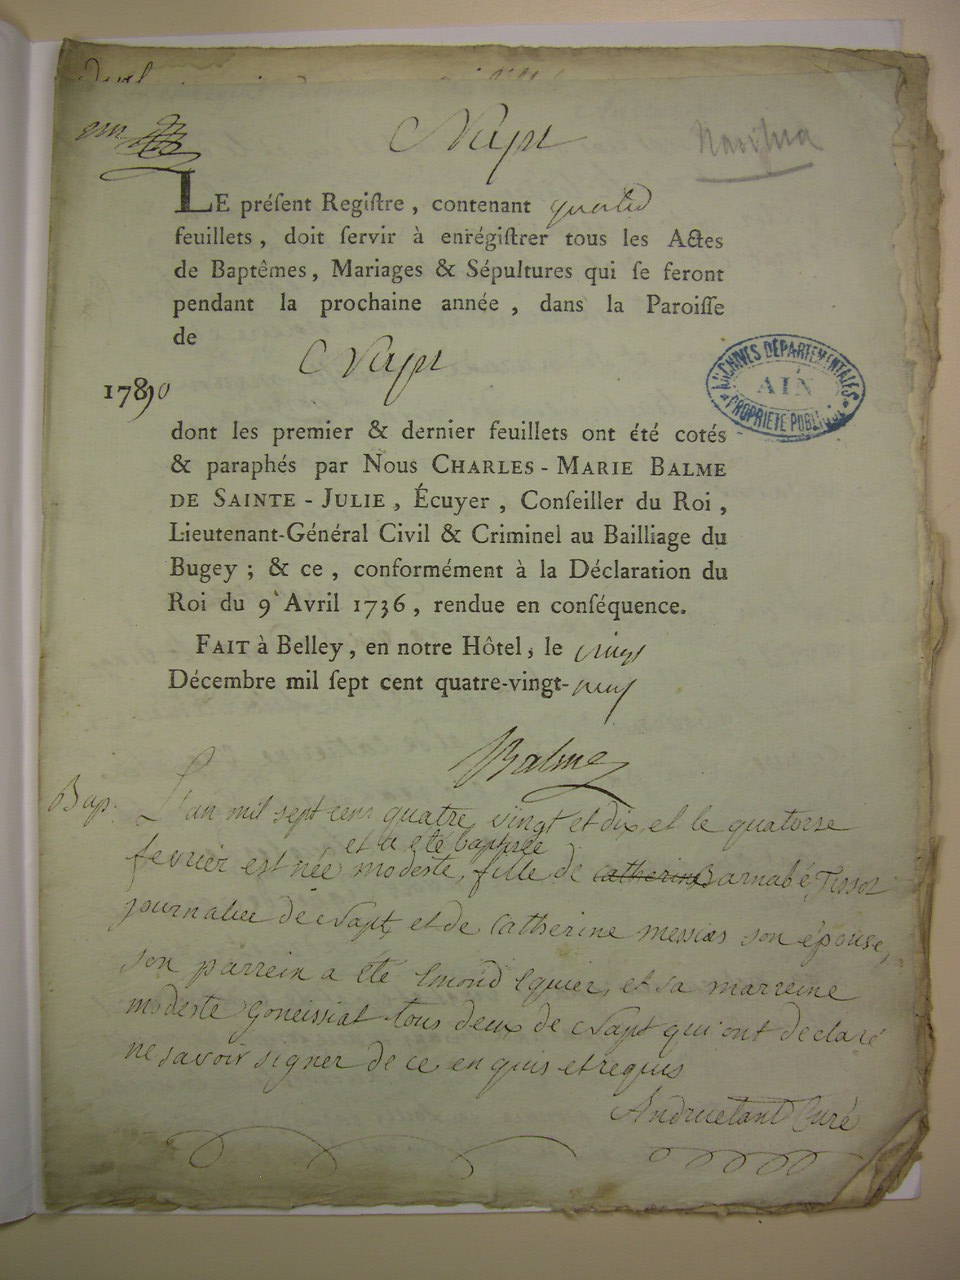 Napt
Nantua
LE préſent Regiſtre, contenant quatre
feuillets, doit ſervir à enrégiſtrer tous les Actes
de Baptêmes, Mariages & Sépultures qui ſe feront
pendant la prochaine année, dans la Paroiſſe
de
Napt
1790
ARCHIVES DÉPARTEMENTALES
AIN
PROPRIETE PUBLIQUE
dont les premier & dernier feuillets ont été cotés
& paraphés par Nous CHARLES-MARIE BALME
DE SAINTE-JULIE, Écuyer, Conſeiller du Roi,
Lieutenant-Général Civil & Criminel au Bailliage du
Bugey; & ce, conformément à la Déclaration du
Roi du 9 Avril 1736, rendue en conſéquence.
FAIT à Belley, en notre Hôtel, le vingt
Décembre mil ſept cent quatre-vingt-neuf
Balme
Bap. L'an mil sept cent quatre vingt et dix, et le quatorse
et a été baptisée
fevrier est née modeste, fille de catherine Barnabé Tissot
journalier de Napt, et de Catherine messias son épouse,
son parrein a été Emond Eguier, et sa marreine
modeste Goneissiat tous deux de Napt qui ont declaré
ne savoir signer de ce enquis et requis
Andruetant Curé